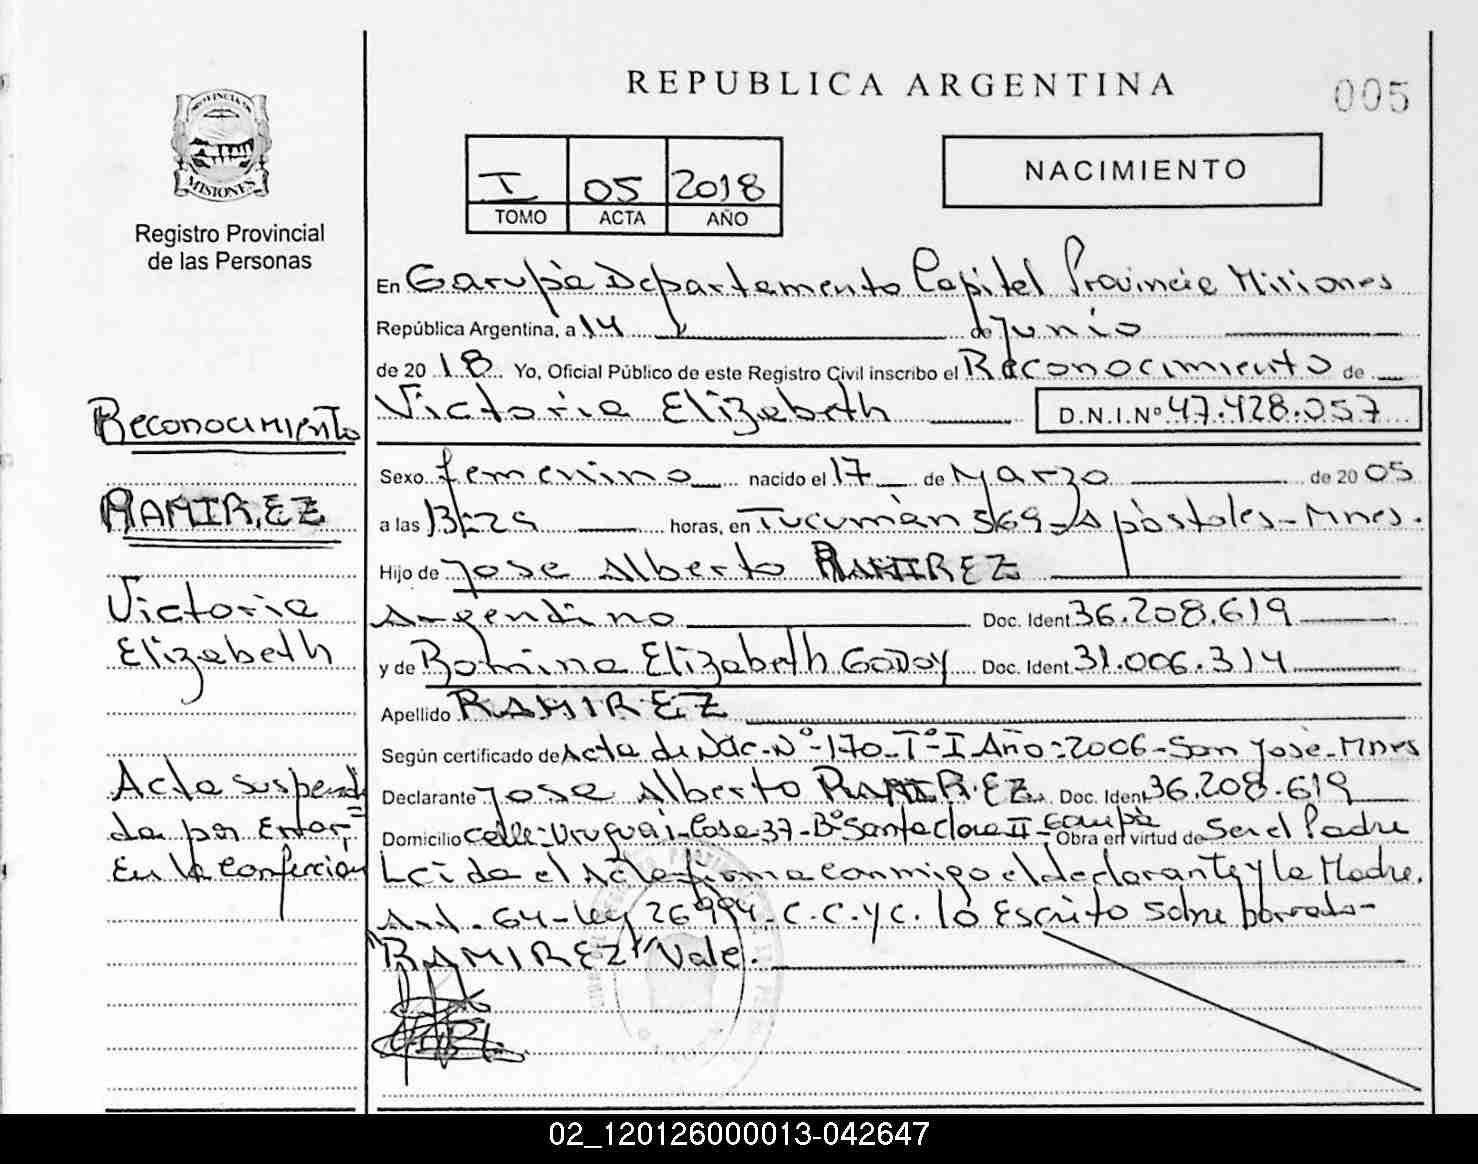 REPUBLICA ARGENTINA
005
PROVINCIA DE
MISIONES
Registro Provincial
de las Personas
I 05 2018
TOMO ACTA AÑO
NACIMIENTO
En Garupá Departamento Capital Provincia Misiones
República Argentina, a 14 de Junio
de 2018 Yo, Oficial Público de este Registro Civil inscribo el Reconocimiento de
Victoria Elizabeth D.N.I.Nº 47.428.057
Sexo femenino nacido el 17 de Marzo de 2005
a las 13:25 horas, en Tucumán 569 - Apóstoles - Mnes.
Hijo de Jose Alberto RAMIREZ
Argentino Doc. Ident. 36.208.619
y de Romina Elizabeth GODOY Doc. Ident. 31.006.314
Apellido RAMIREZ
Según certificado de Acta de Nac. Nº-170-Tº-I Año:2006-San José-Mnes
Declarante Jose Alberto RAMIREZ Doc. Ident. 36.208.619
Domicilio Calle: Uruguai-Casa 37-Bº Santa Clara II-Garupá Obra en virtud de Ser el Padre
Leida el Acta firma conmigo el declarante y la Madre.
Art. 64-Ley 26994-C.C.yC. lo Escrito sobre borrado-
"RAMIREZ" Vale.
Reconocimiento
RAMIREZ
Victoria
Elizabeth
Acta suspendi=
da por Error
En la Confección
02_120126000013-042647